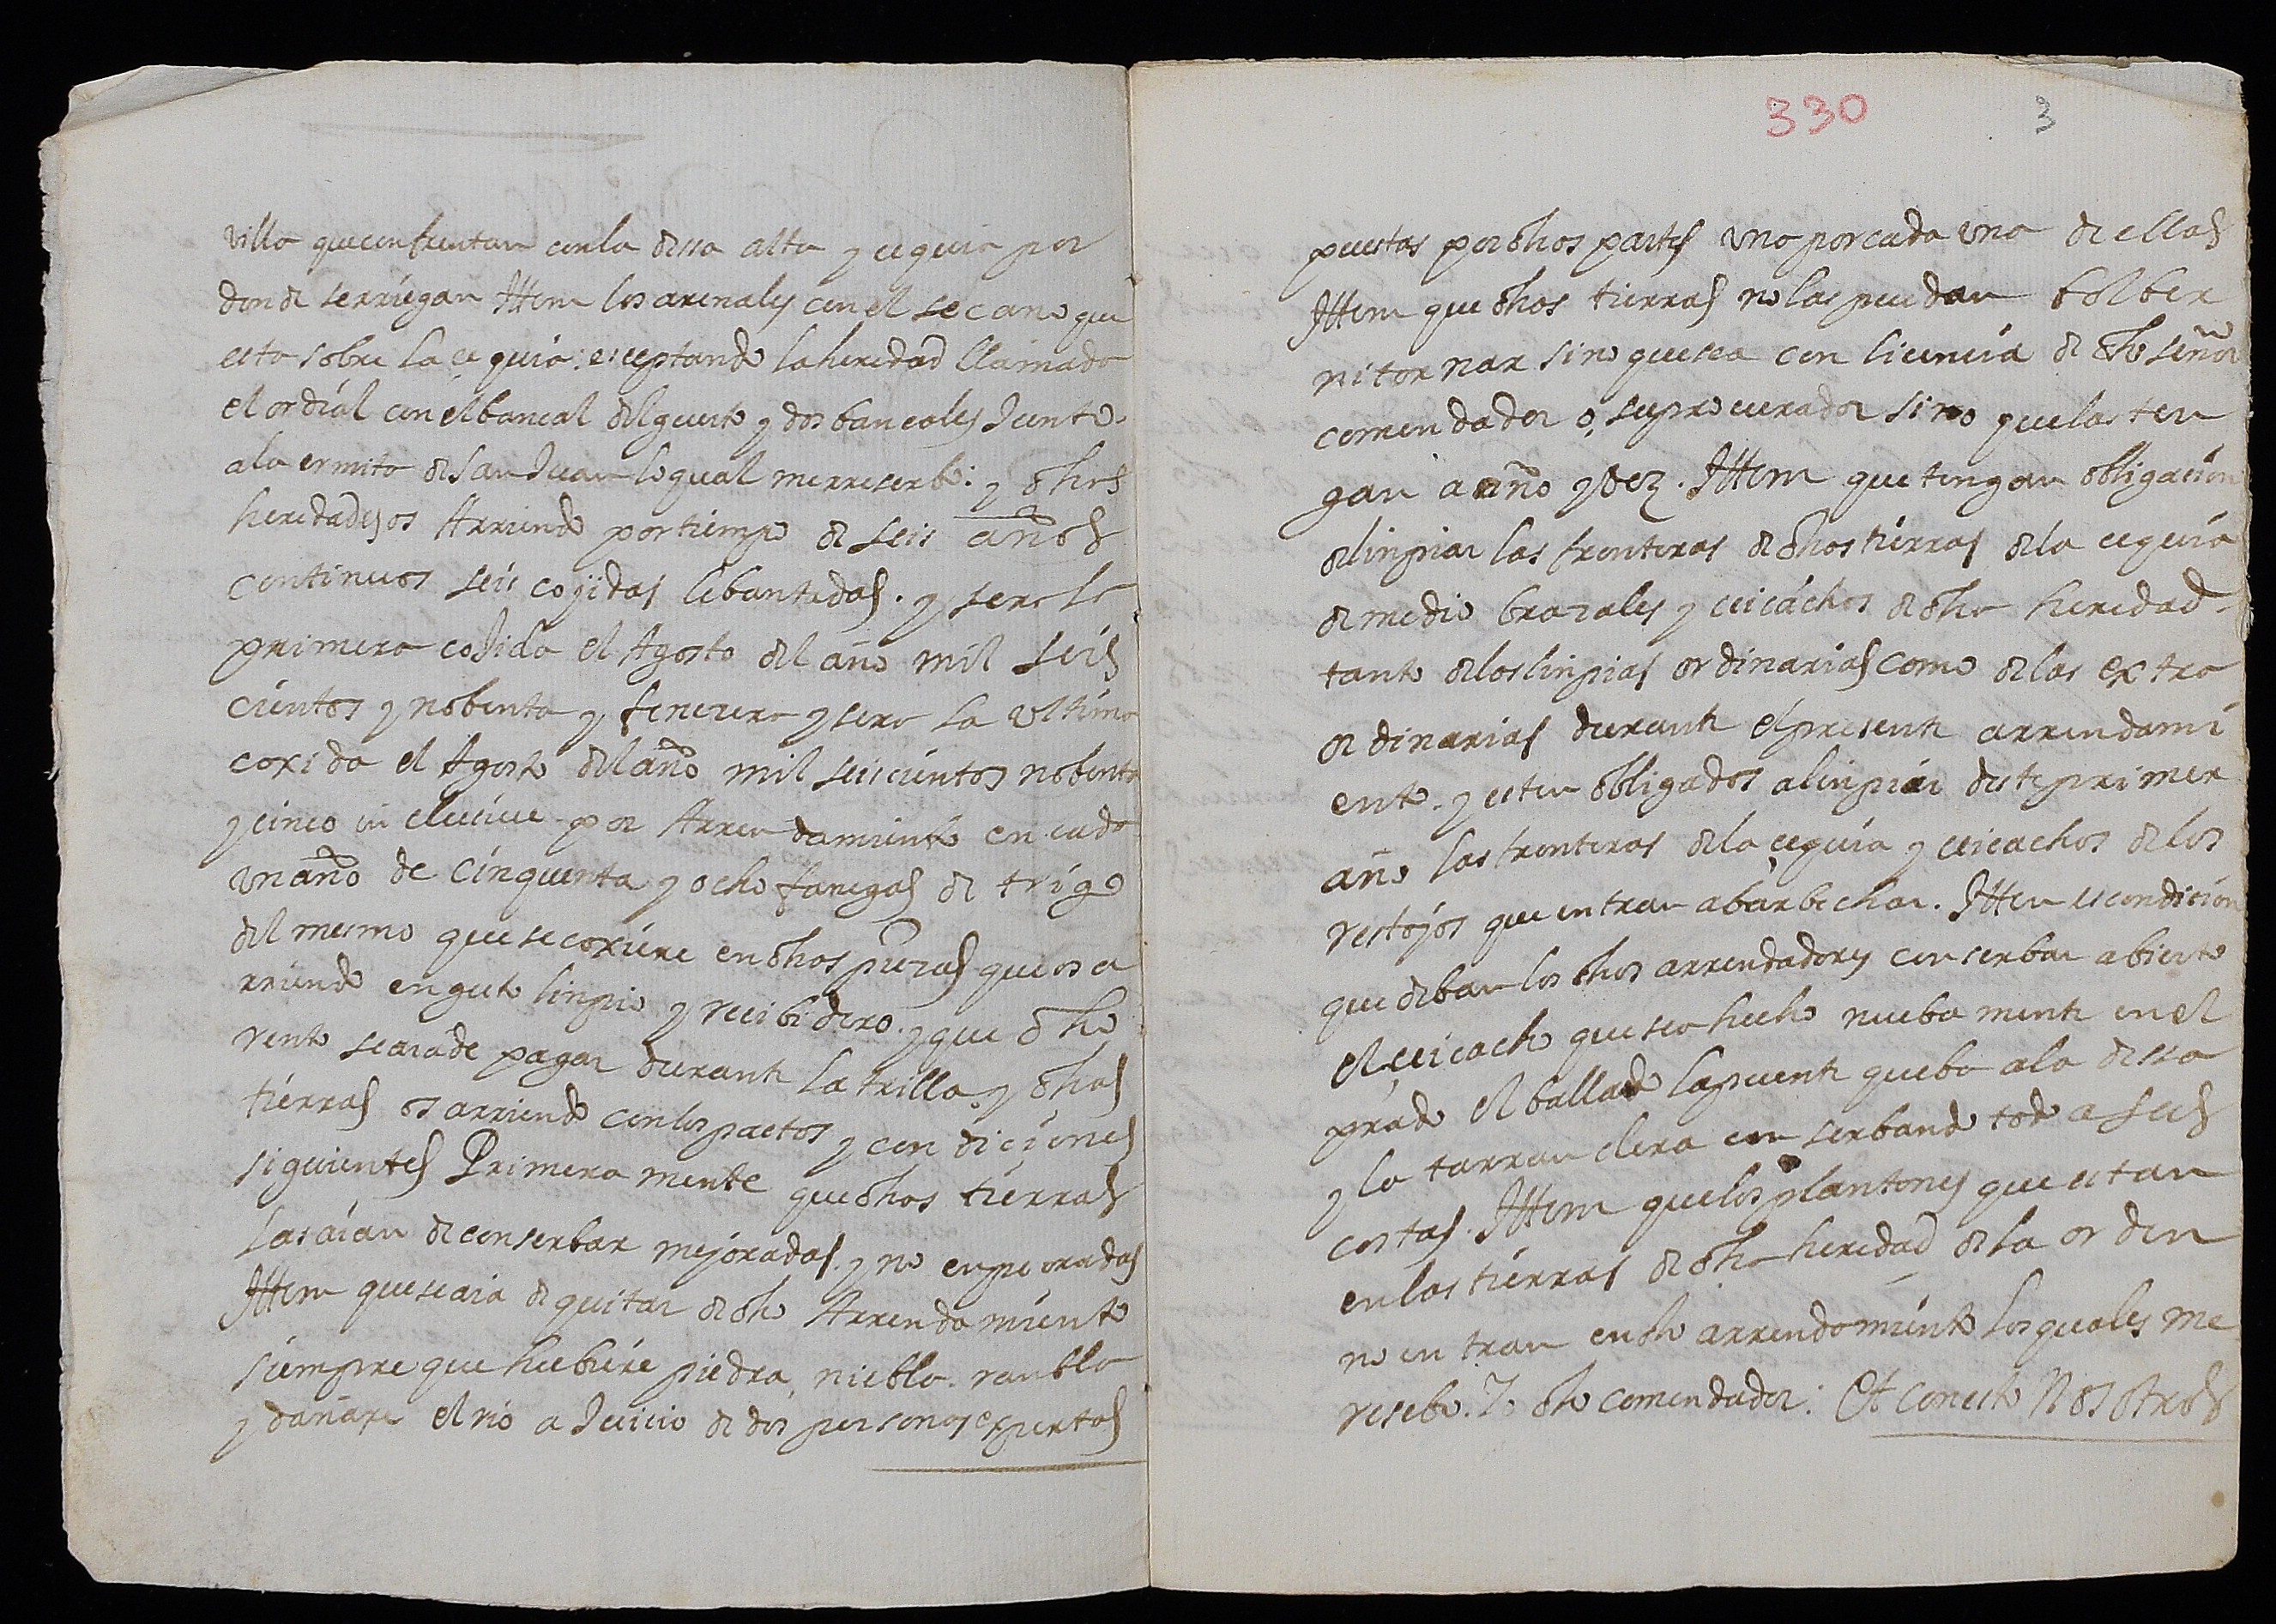 villa que confrentan con la dessa alta y cequia por
donde se rriegan Ittem los arenales con el secano que
esta sobre la cequia: esceptando la heredad llamada
el ordial con el bancal del guerto y dos bancales Junto
a la ermita de San Juan lo qual me rreserbo: y dhos
heredades os Arriendo por tiempo de seis años
continuos seis cojidas lebantadas. y sera la
primera coJida el Agosto del año mil seis
cientos y nobenta y fenecera y sera la ultima
coxida el Agosto del año mil seiscientos nobenta
y cinco inclusive por Arrendamiento en cada
un año de cinquenta y ocho fanegas de trigo
del mesmo que se coxiere en dhas piezas que os a
rriendo en gusto linpio y recibidero. y que dho
rento se aia de pagar durante la trilla. y dhas
tierras os arriendo con los pactos y condiciones
siguientes Primera mente que dhas tierras
las aian de conserbar mejoradas. y no enpeoradas
Ittem que se aia de quitar de dho Arrendamiento
siempre que hubiere piedra, niebla. rambla
y dañare el rio a Juicio de dos personas expertas
330 3
puestas por dhas partes una por cada una de ellas
Ittem que dhas tierras no las puedan bolber
ni tornar sino que sea con licencia de dho señor
comendador o, su procurador sino que las ten
gan a año y vez. Ittem que tengan obligacion
de linpiar las fronteras de dhas tierras de la cequia
de medio brazales y cicachos de dha heredad
tanto de las linpias ordinarias como de las extra
ordinarias durante el presente arrendami
ento. y esten obligados a linpiar deste primer
año las fronteras de la cequia y cicachos de los
restojos que entran a barbechar. Ittem es condicion
que deban los dhos arrendadores conserbar abierto
el cicacho que se a hecho nueba mente en el
prado el ballado la puente que ba a la dessa
y la tarranclera conserbando todo a sus
costas. Ittem que los plantones que estan
en las tierras de dha heredad de la orden
no entran en dho arrendamiento los quales me
resebo. Yo dho comendador: Et con esto Nosotros